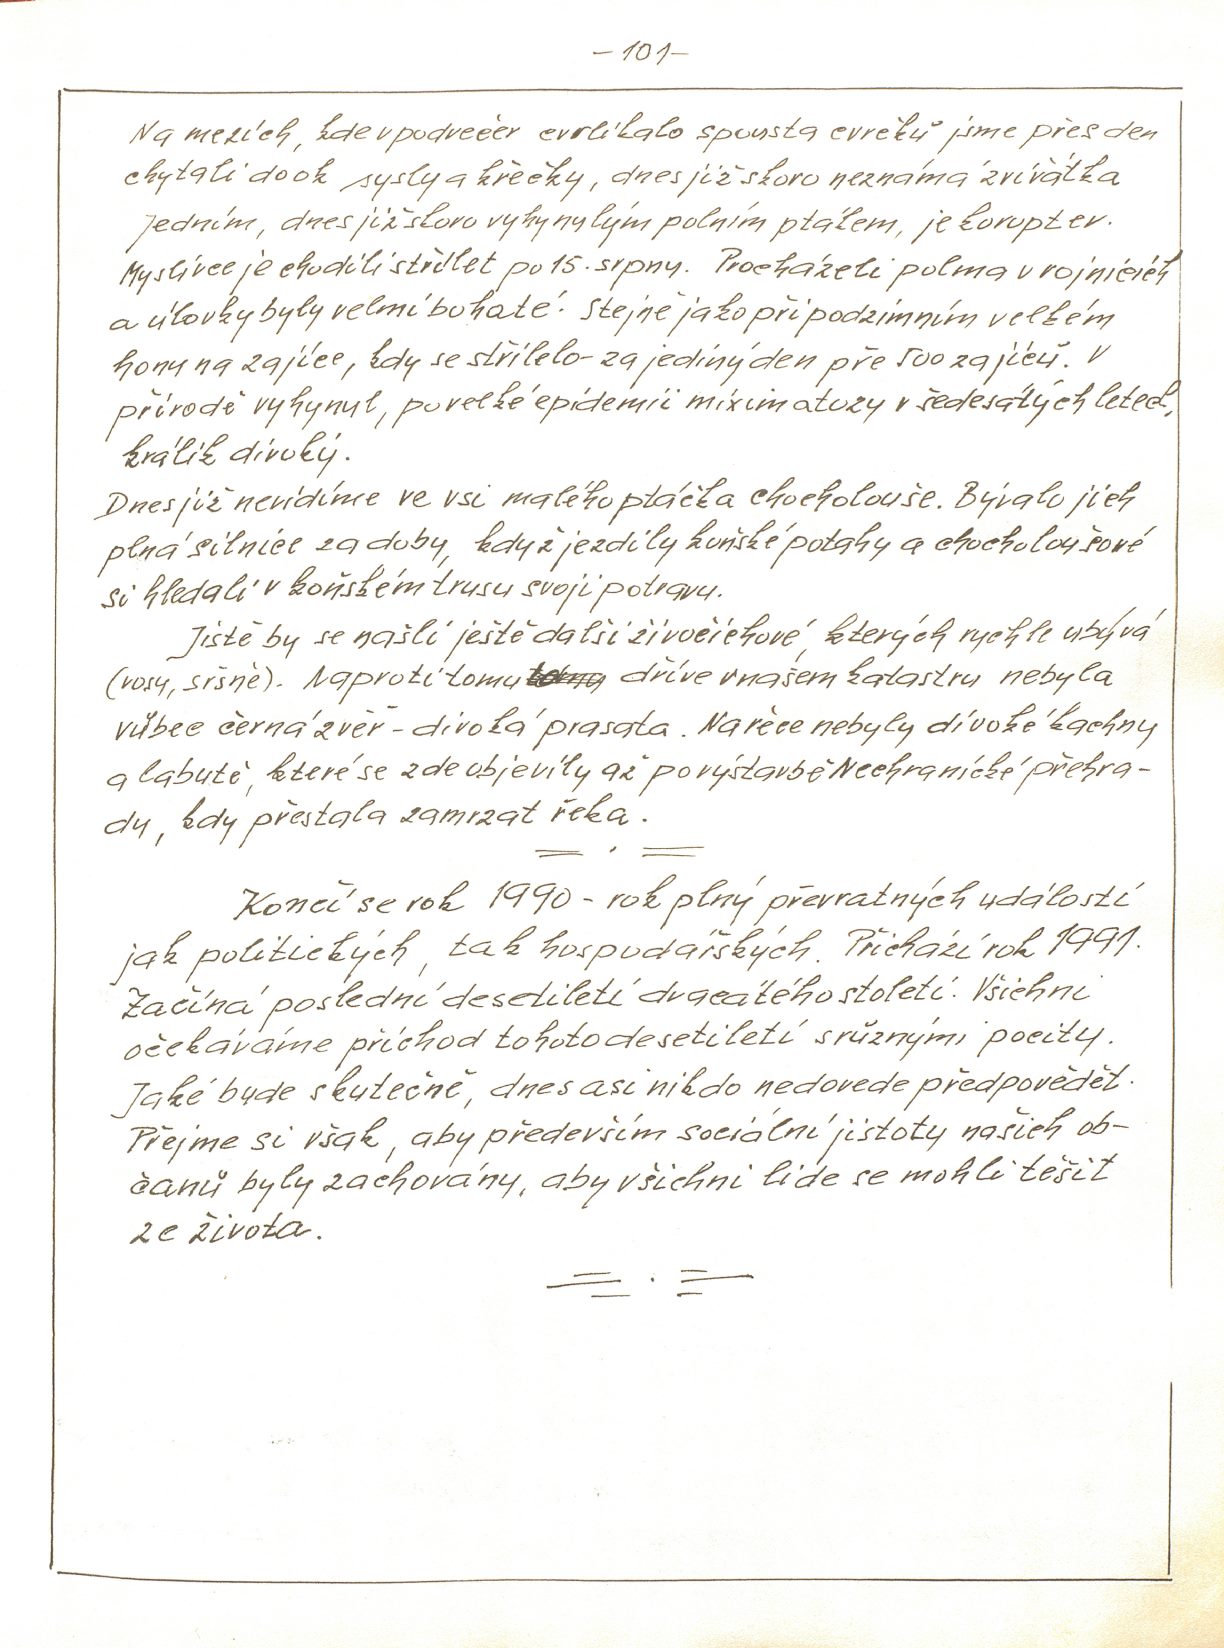 - 101 -
Na mezích, kde v podvečer cvrlikalo spousta cvrčků jsme přes den
chytali do ok sysly a křečky, dnes již skoro neznámá zvířátka
Jedním, dnes již skoro vyhynulým polním ptákem, je koroptev.
Myslivce je chodili střílet po 15. srpnu. Procházeli polma v rojnicích
a úlovky byly velmi bohaté. Stejně jako při podzimním velkém
honu na zajíce, kdy se střílelo - za jediný den pře 500 zajíců. V
přírodě vyhynul, po velké epidemii miximatozy v šedesátých letech,
králík divoký.
Dnes již nevidíme ve vsi malého ptáčka chocholouše. Bývalo jich
plná silnice za doby, když jezdily koňské potahy a chocholoušové
si hledali v koňském trusu svoji potravu.
Jistě by se našli ještě další živočichové, kterých rychle ubývá
(vosy, sršně). Naproti tomu dříve v našem katastru nebyla
vůbec černá zvěř - divoká prasata. Na řece nebyly divoké kachny
a labutě, které se zde objevily až po výstavbě Nechranické přehra-
dy, kdy přestala zamrzat řeka.
Končí se rok 1990 - rok plný převratných událostí
jak politických, tak hospodářských. Přichází rok 1991.
Začíná poslední desetiletí dvacátého století. Všichni
očekáváme příchod tohoto desetiletí s různými pocity.
Jaké bude skutečně, dnes asi nikdo nedovede předpovědět.
Přejme si však, aby především sociální jistoty našich ob-
čanů byly zachovány, aby všichni lide se mohli těšit
ze života.